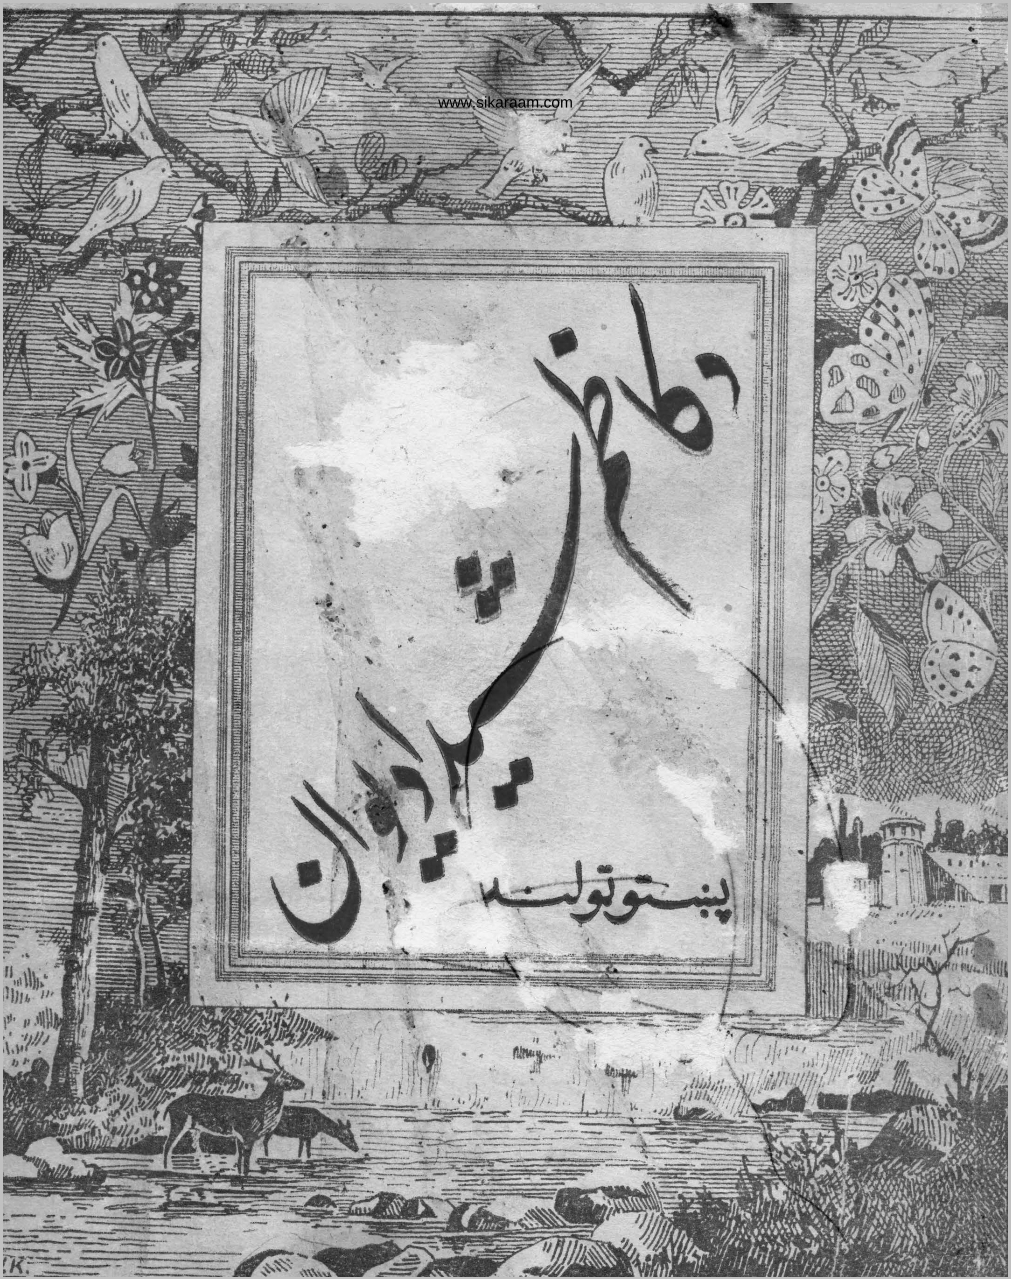 www.sikaraam.com
د کاظم شیدا دیوان
پښتو ټولنه